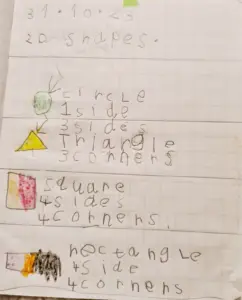 31·10·23
2D shapes.
circle
1side
3sides
Triangle
3corners
square
4sides
4corners.
rectangle
4side
4corners